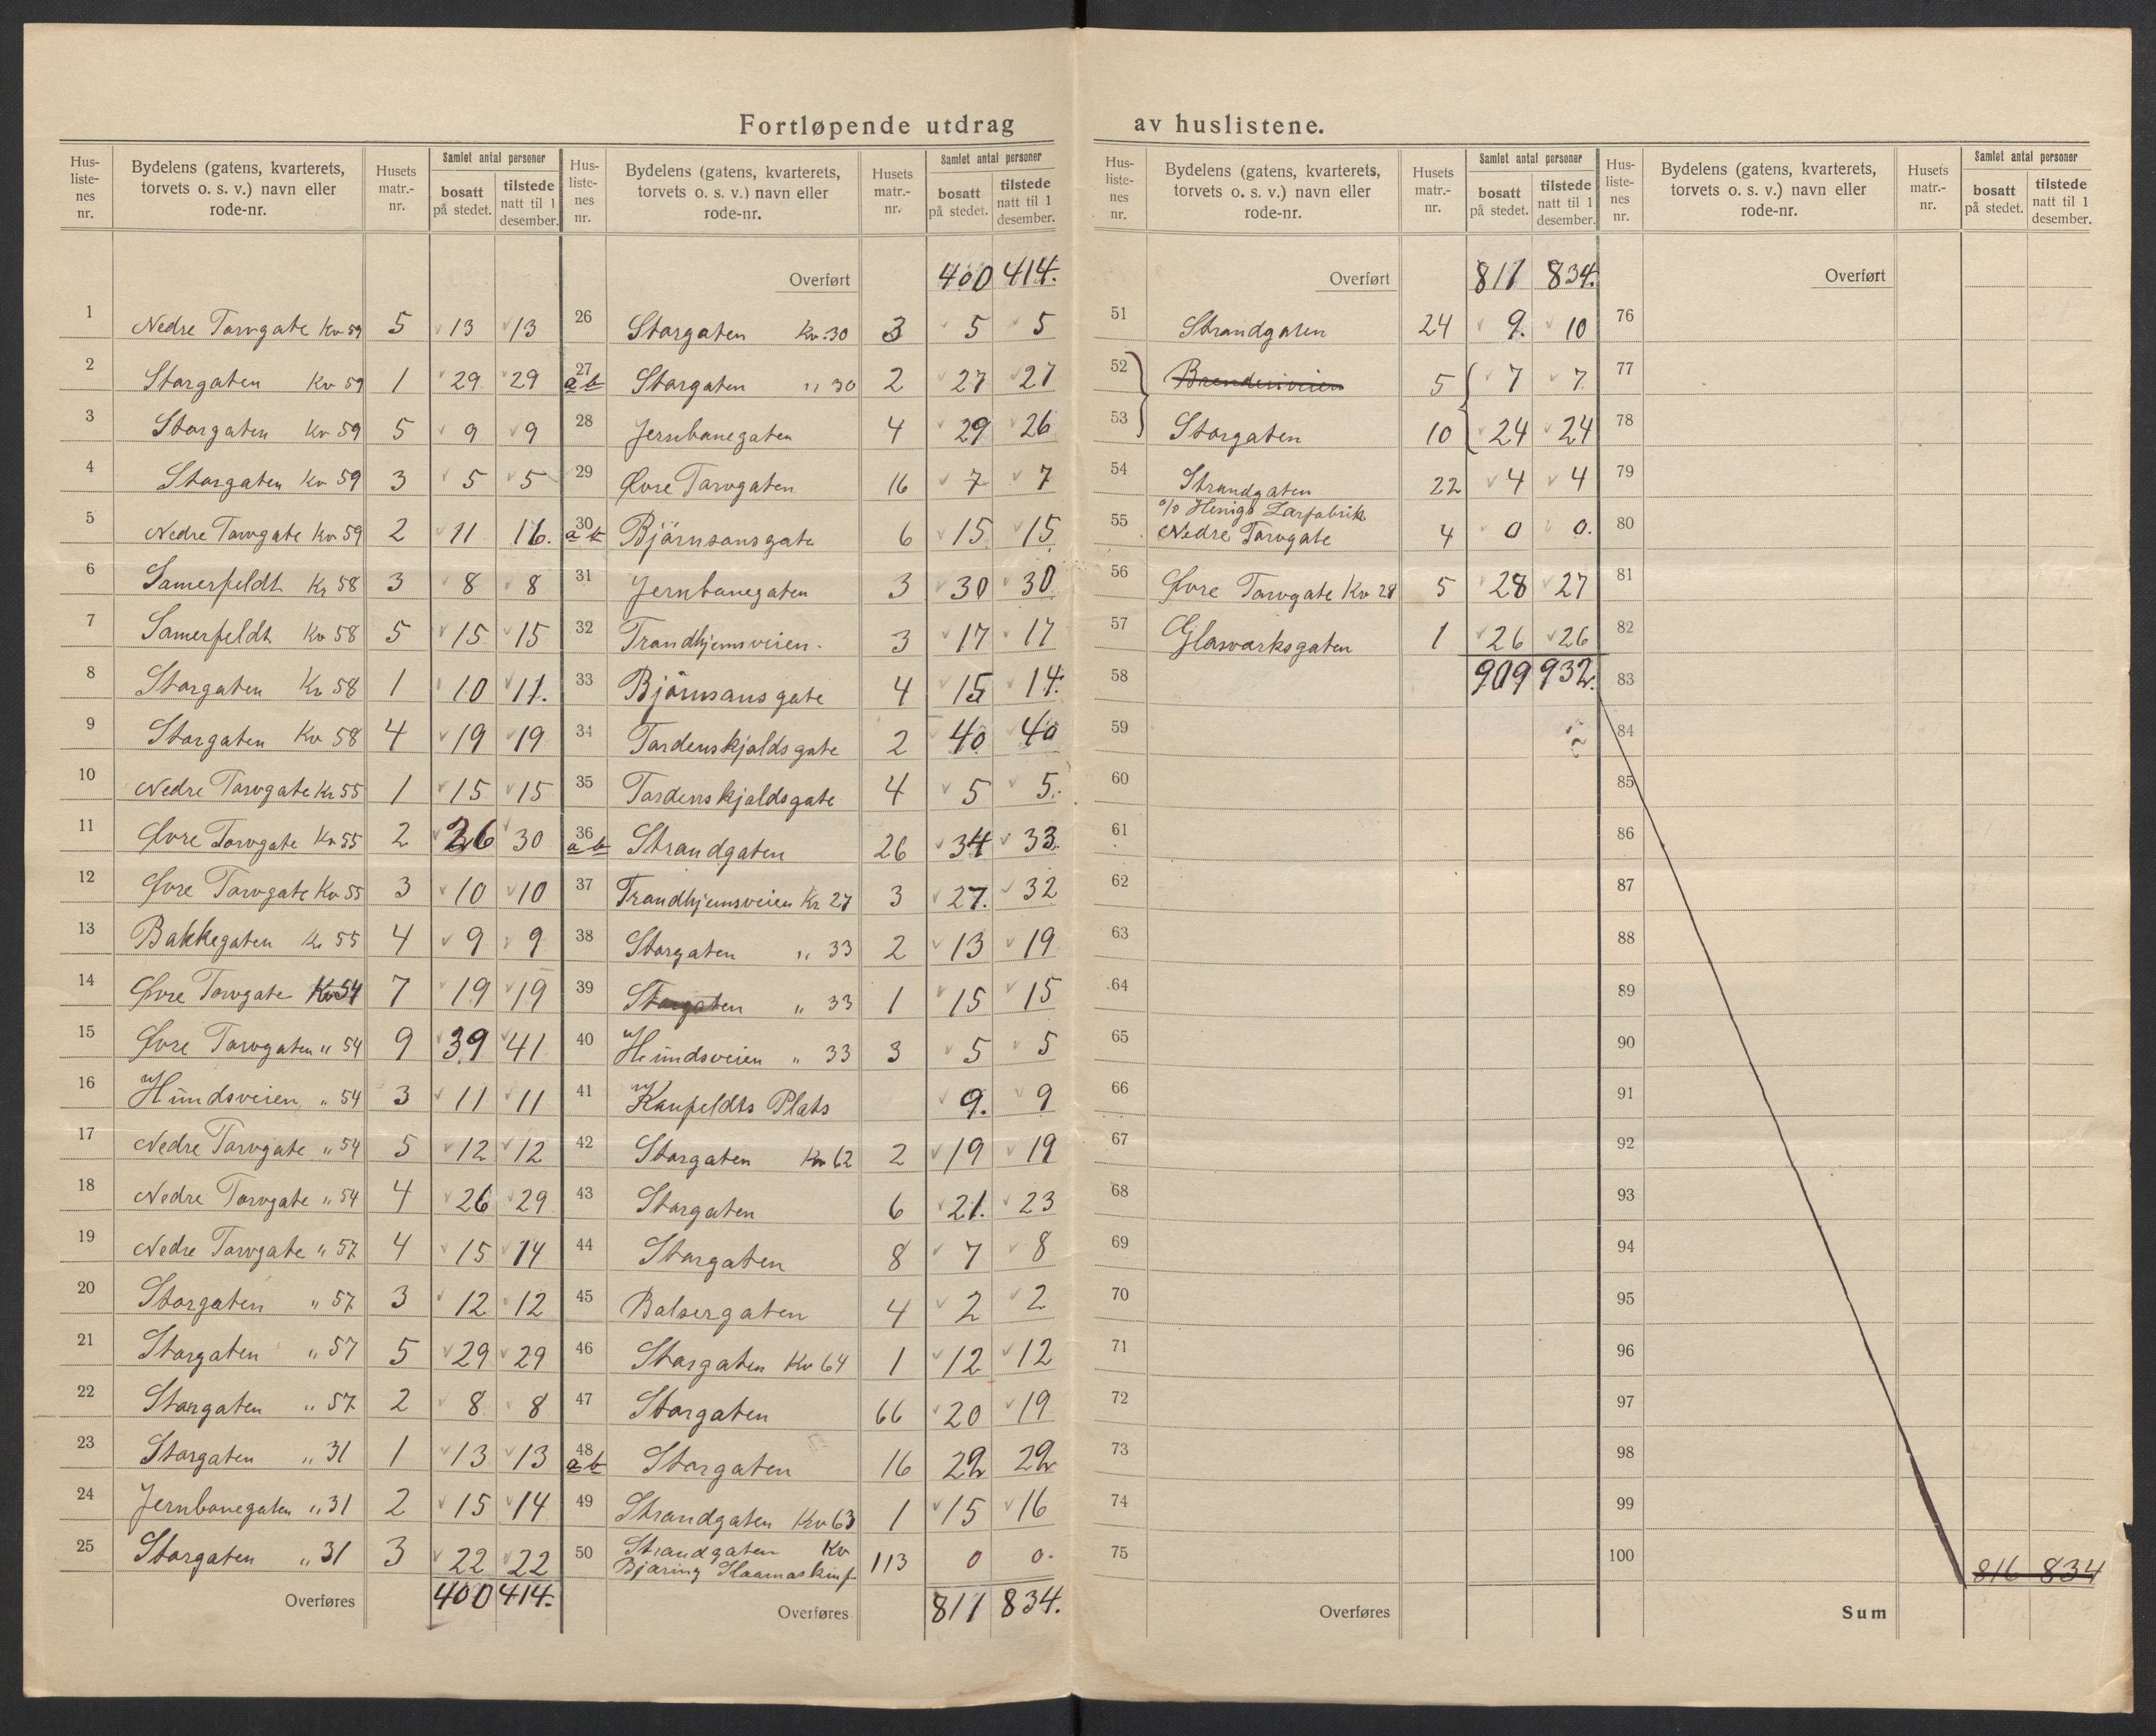 Fortløpende utdrag av huslistene.
Hus-
liste-
nes
nr.
Bydelens (gatens, kvarterets,
torvets o. s. v.) navn eller
rode-nr.
Husets
matr.-
nr.
Samlet antal personer
bosatt
på stedet.
tilstede
natt til 1
desember.
1 Nedre Torvgate Kv 59 5 13 13
2 Storgaten Kv 59 1 29 29
3 Storgaten Kv 59 5 9 9
4 Storgaten Kv 59 3 5 5
5 Nedre Torvgate Kv 59 2 11 16.
6 Somerfeldt Kv 58 3 8 8
7 Somerfeldt Kv 58 5 15 15
8 Storgaten Kv 58 1 10 11.
9 Storgaten Kv 58 4 19 19
10 Nedre Torvgate Kv 55 1 15 15
11 Øvre Torvgate Kv 55 2 26 30
12 Øvre Torvgate Kv 55 3 10 10
13 Bakkegaten Kv 55 4 9 9
14 Øvre Torvgate Kv 54 7 19 19
15 Øvre Torvgaten " 54 9 39 41
16 Hundsveien " 54 3 11 11
17 Nedre Torvgate " 54 5 12 12
18 Nedre Torvgate " 54 4 26 29
19 Nedre Torvgate " 57 4 15 14
20 Storgaten " 57 3 12 12
21 Storgaten " 57 5 29 29
22 Storgaten " 57 2 8 8
23 Storgaten " 31 1 13 13
24 Jernbanegaten " 31 2 15 14
25 Storgaten " 31 3 22 22
Overføres 400 414.
Hus-
liste-
nes
nr.
Bydelens (gatens, kvarterets,
torvets o. s. v.) navn eller
rode-nr.
Husets
matr.-
nr.
Samlet antal personer
bosatt
på stedet.
tilstede
natt til 1
desember.
Overført 400 414.
26 Storgaten Kv. 30 3 5 5
27 a b Storgaten " 30 2 27 27
28 Jernbanegaten 4 29 26
29 Øvre Torvgaten 16 7 7
30 a b Björnsonsgate 6 15 15
31 Jernbanegaten 3 30 30
32 Trondhjemsveien. 3 17 17
33 Björnsonsgate 4 15 14.
34 Tordenskjoldsgate 2 40. 40
35 Tordenskjoldsgate 4 5 5.
36 a b Strandgaten 26 34 33.
37 Trondhjemsveien Kv 27 3 27. 32
38 Storgaten " 33 2 13 19
39 Storgaten " 33 1 15 15
40 Hundsveien " 33 3 5 5
41 Kaufeldts Plats 9. 9
42 Storgaten Kv 62 2 19 19
43 Storgaten 6 21. 23
44 Storgaten 8 7 8
45 Balsergaten 4 2 2
46 Storgaten Kv 64 1 12 12
47 Storgaten 66 20 19
48 a b Storgaten 16 22 22
49 Strandgaten Kv 63 1 15 16
50 Strandgaten Kv
Bjøring 113 0 0.
Overføres 811 834.
Hus-
liste-
nes
nr.
Bydelens (gatens, kvarterets,
torvets o. s. v.) navn eller
rode-nr.
Husets
matr.-
nr.
Samlet antal personer
bosatt
på stedet.
tilstede
natt til 1
desember.
Overført 811 834.
51 Strandgaten 24 9. 10
52 5 7 7.
53 Storgaten 10 24 24
54 Strandgaten 22 4 4
55 Nedre Torvgate 4 0 0.
56 Øvre Torvgate Kv 28 5 28 27
57 Glasværksgaten 1 26 26
58 909 932.
59
60
61
62
63
64
65
66
67
68
69
70
71
72
73
74
75
Overføres
Hus-
liste-
nes
nr.
Bydelens (gatens, kvarterets,
torvets o. s. v.) navn eller
rode-nr.
Husets
matr.-
nr.
Samlet antal personer
bosatt
på stedet.
tilstede
natt til 1
desember.
Overført
76
77
78
79
80
81
82
83
84
85
86
87
88
89
90
91
92
93
94
95
96
97
98
99
100 816 834
Sum